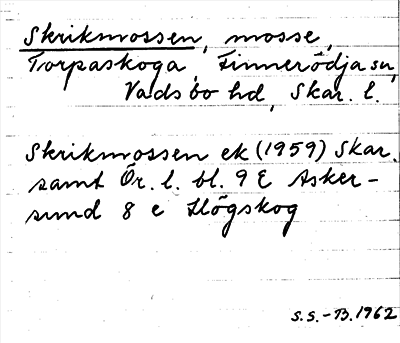 Skrikmossen, mosse,
Torpaskoga, Finnerödja sn,
Vadsbo hd, Skar. l.
Skrikmossen ek (1959) Skar.
samt Ör. l. bl. 9 E Asker-
sund 8 e Högskog
S.S.-B. 1962